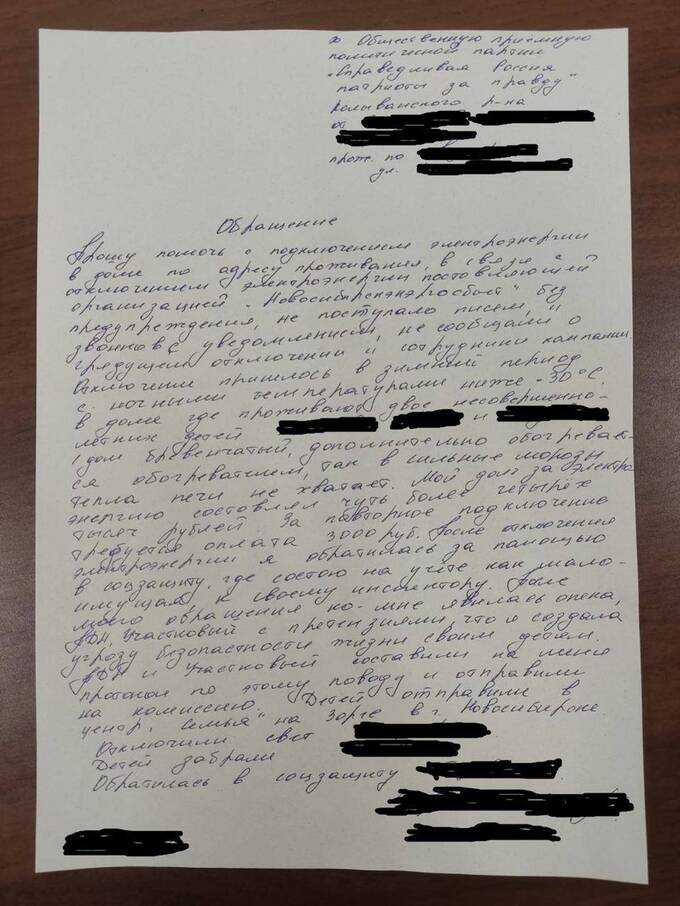 в Общественную приёмную
политической партии
"Справедливая Россия
патриоты за правду"
Колыванского р-на
от
прож. по
ул.
Обращение
Прошу помочь с подключением электроэнергии
в доме по адресу проживания, в связи с
отключением электроэнергии поставляющей
организацией "Новосибирскэнэргосбыт" без
предупреждения, не поступало писем, и
звонков с уведомлением, не сообщали о
грядущем отключении и сотрудники кампании.
Отключение пришлось в зимний период
с ночными температурами ниже -30°С.
в доме где проживают двое несовершенно-
летних детей и
(дом бревенчатый, дополнительно обогревает-
ся обогревателем, так в сильные морозы
тепла печи не хватает. Мой долг за электро
энергию составлял чуть более четырёх
тысяч рублей. За повторное подключение
требуется оплата 3000 руб. После отключения
электроэнергии я обратилась за помощью
в соцзащиту, где состою на учёте как мало-
имущая к своему инспектору. После
моего обращения ко-мне явилась опека,
ПДН, участковый с претензиями, что я создала
угрозу безопастности жизни своим детям.
ПДН и участковый составили на меня
протокол по этому поводу и отправили
на комиссию. Детей отправили в
центр "Семья" на Зорге в г. Новосибирске
Отключили свет
Детей забрали
Обратилась в соцзащиту